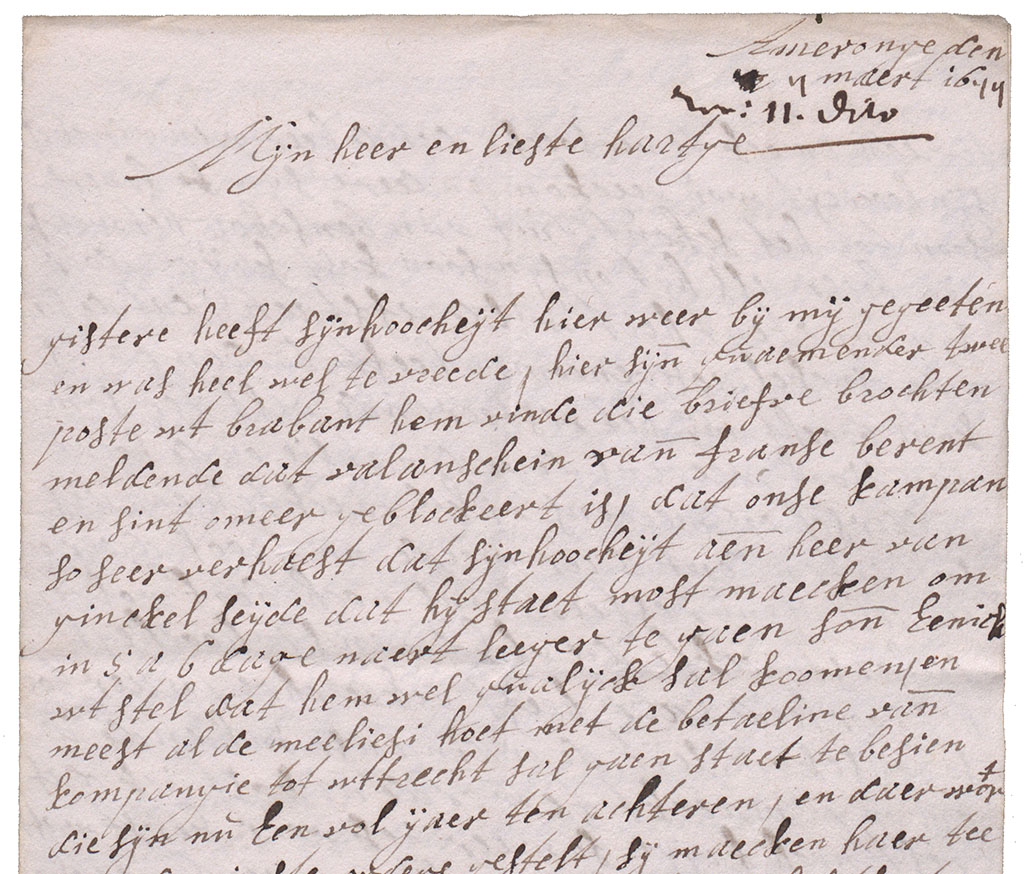 Ameronge den
7 maert 1677
11. dito
Mijn heer en lieste hartge
gistere heeft sijnhoocheijt hier weer bij mij gegeeten
en was heel wel te vreede, hier sijn gnaemender twee
poste wt brabant hem vinde die briefve brochten
meldende dat valanschein van franse berent
en sint omeer geblockeert is, dat onse kampan
so seer verhaest dat sijnhoocheijt aen heer van
ginckel seijde dat hij staet most maecken om
in 5 a 6 dage naert leeger te gaen son eenich
wtstel dat hem wel qualijck sal koomen, en
meest al de meeliesi hoet met de betaeline van
kompangie tot wttrecht sal gaen staet te besien
die sijn nu een vol ijaer ten achteren, en daer wort
gestelt, sij maecken haer tee